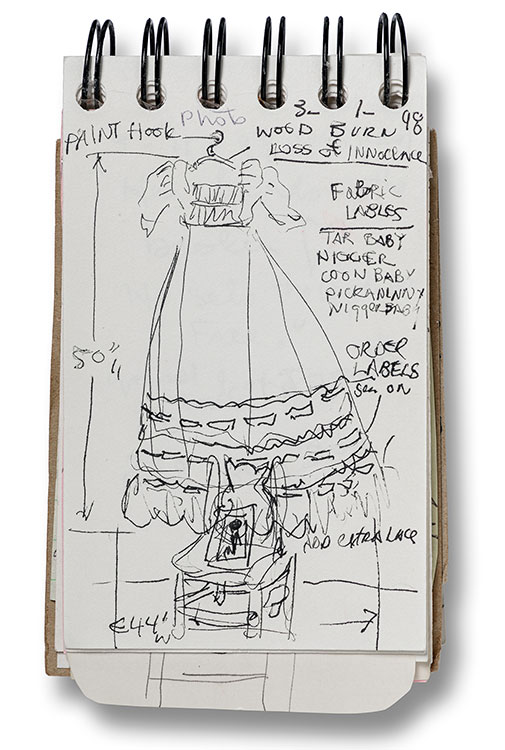 3- 1- 98
Photo
PAINT HOOK
WOOD BURN
LOSS of INNOCENCE
FABRIC
LABLES
TAR BABY
NIGGER
COON BABY
PICKANINNY
NIGGER BABY
50"
ORDER
LABELS
Sew ON
ADD EXTRA LACE
44"
W